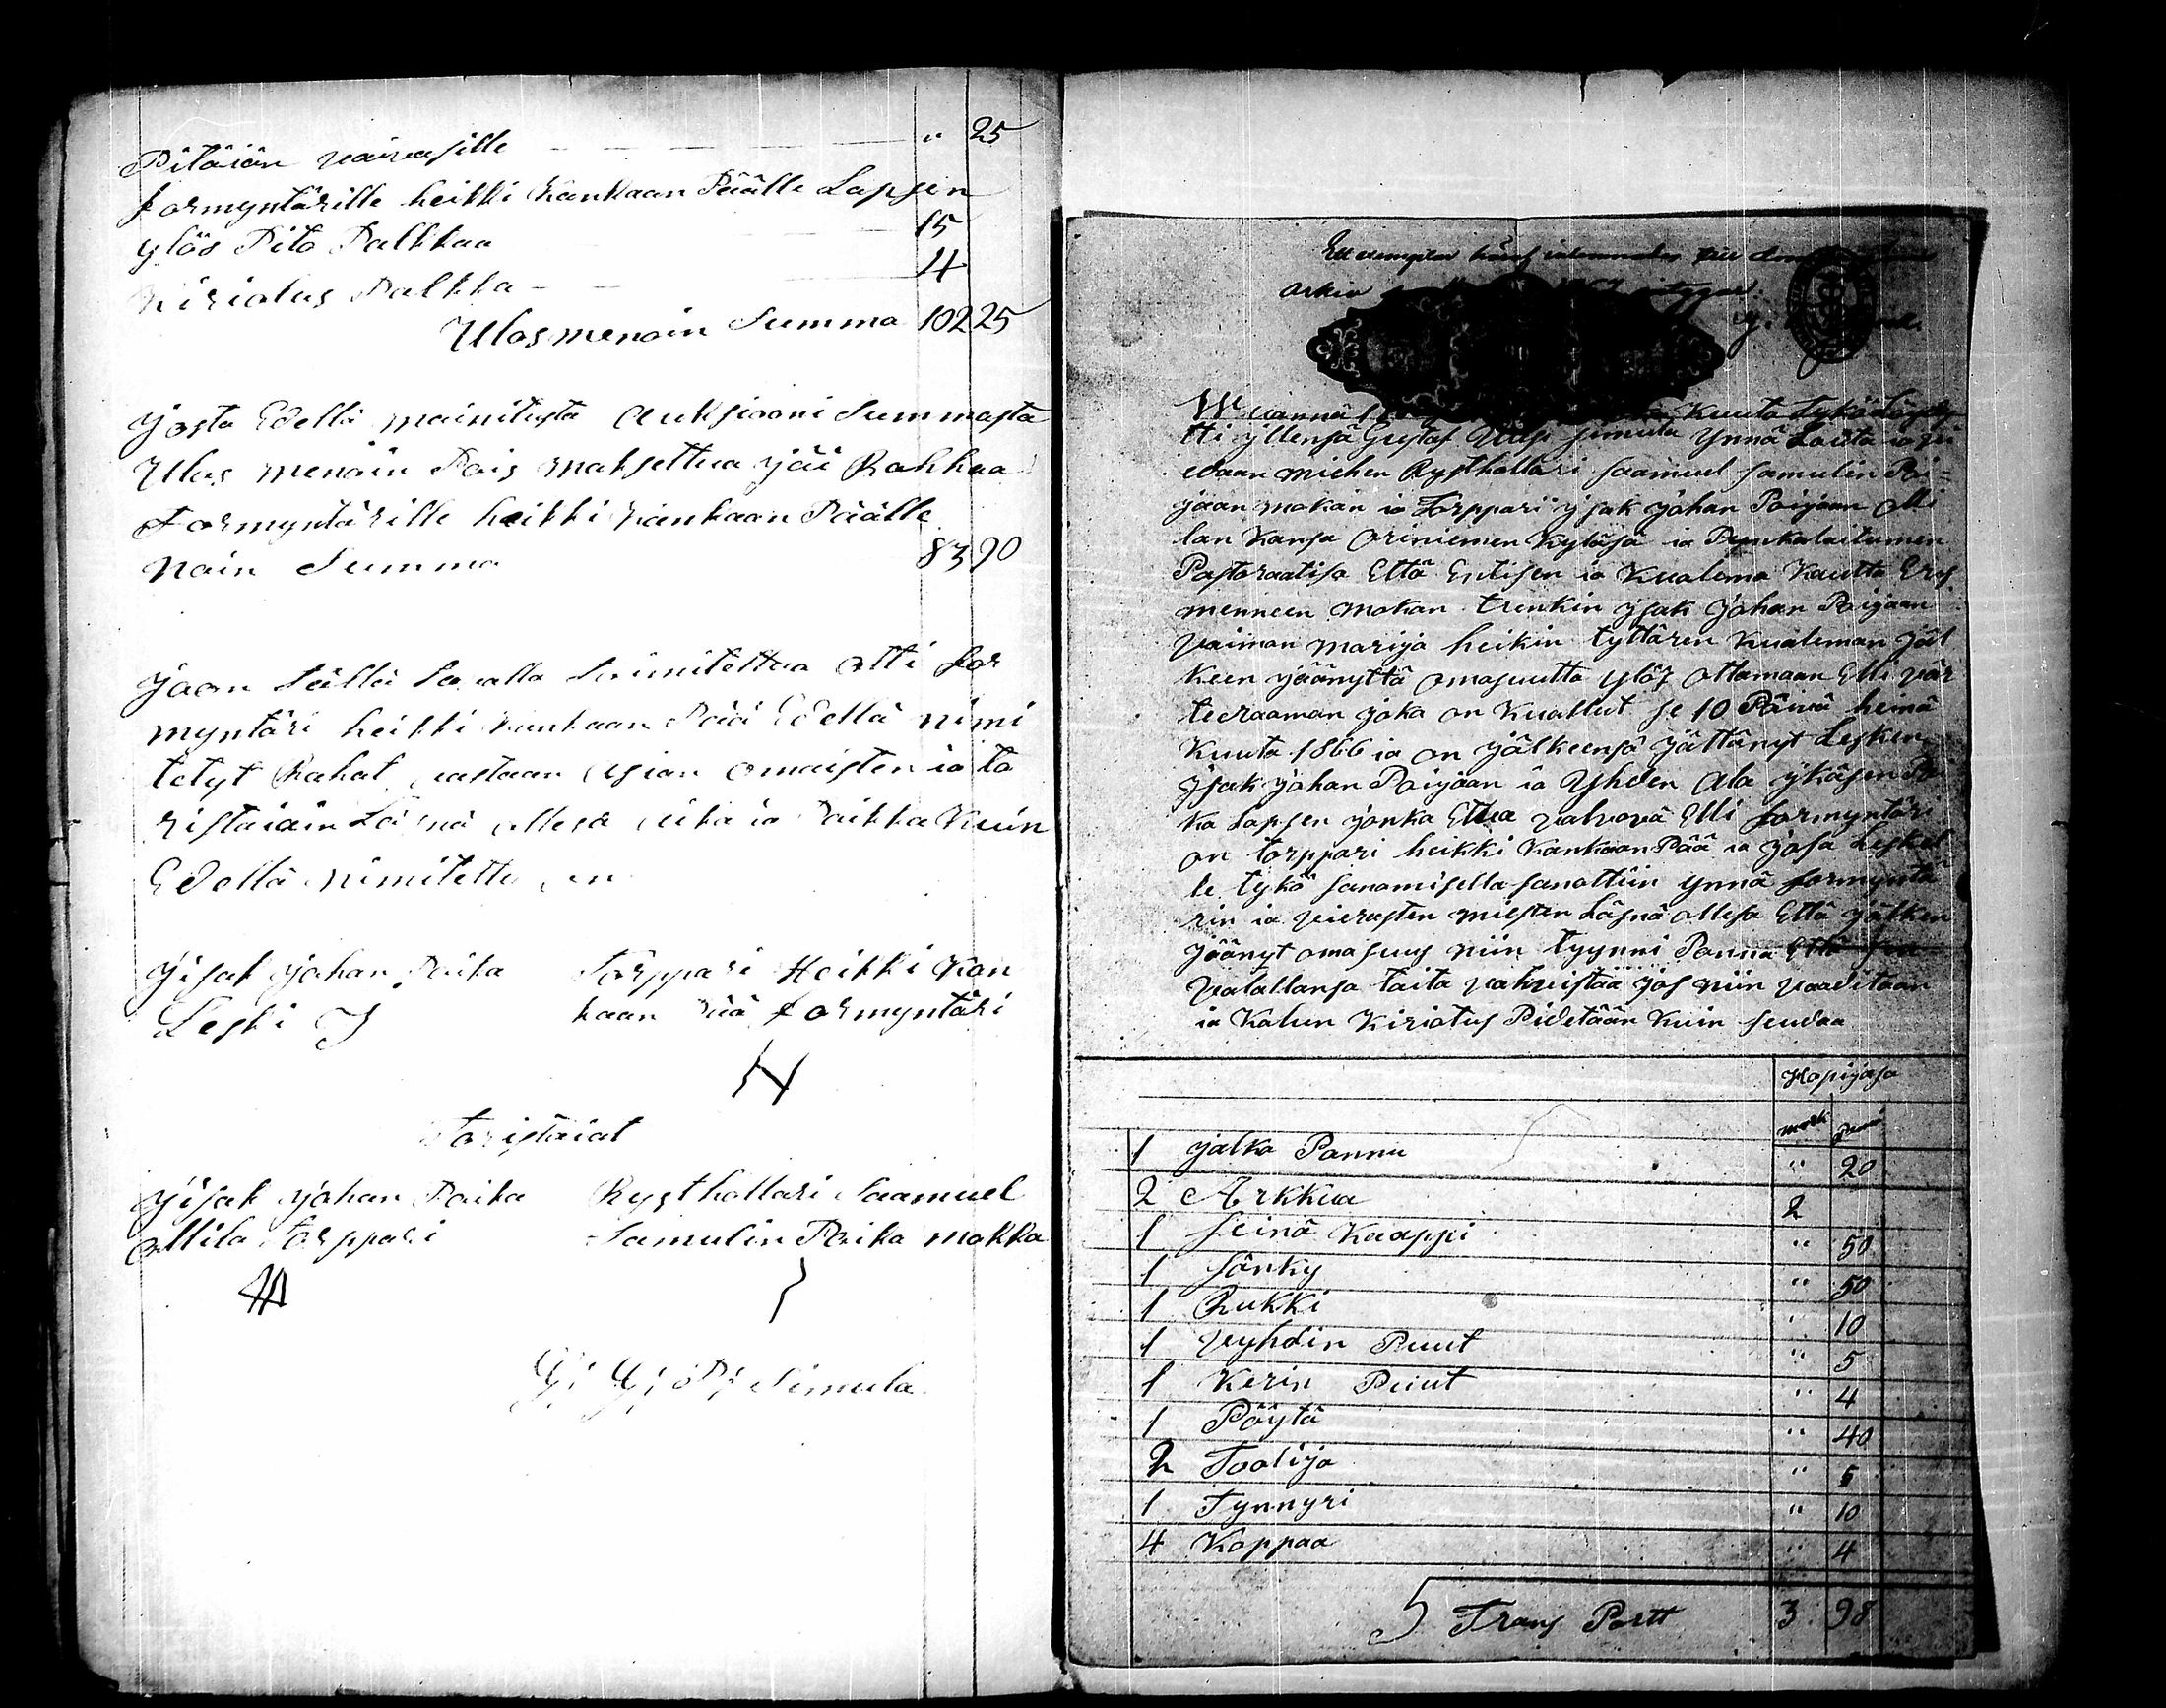 Pitäiän vaivasille — — — — " 25
formyntärille heikki Kankaan Päälle Lapsen
ylös Pito Palkkaa 15
Kiriotus Palkka — — 4
Ulos menoin Summa 102 25
Josta Edellä mainitusta Auksiooni Summasta
Ulos menoin Pois maksettua jäi Rahhaa
Formyntärille heikki Kankaan Päälle
Noin Summa 83 90
Jaan Sillä tavalla nimitettua otti for
myntäri heikki Kankaan Pää Edellä nimi
tetyt Rahat vastaan asian omaisten ia to
ristaiain Läsnä ollesa aika ia Paikka Kuin
Edellä nimitettu on
Jisak Johan Poika Torppari Heikki Kan
Leski J kaan Pää formyntäri
Toristaiat
Jisak Johan Poika Rysthollari Saamuel
Ollila Torppari Samulin Poika mokka
G; G; P; Simula
Ett exemplar häraf inlemnades till
arkiv
W uonna Kuuta Tykö Löysi
tti yllensä Gustaf Simula Ynnä Lauta ia
edaan miehen Rysthollari Saamuel Samulin Poi=
jaan mokan ia Torppari jsak johan Poijaan Olli
lan Kansa Oriniemen Kyläsä ia Punkalaitumen
Pastoraatisa Että Entisen ia Kualema Kautta Eros
menneen mokan trenkin jsak johan Poijaan
Vaiman marija heikin tyttären Kualeman jäl
keen jäänyttä omasuutta ylös ottamaan Elli vär
teeraaman joka on Kuallut se 10 Päivä hemä
Kuuta 1866 ia on jälkeensä jättänyt Lesken
jsak johan Poijaan ia Yhden Ala ykäsen Poi
ka Lapsen jonka Etua valvova Elli formyntäri
on torppari heikki Kankaan Pää ia josa Leskel
le tykö sanomisella sanottiin ynnä formyntä
rin ia vierasten miesten Läsnä ollesa Että jälken
jäänyt omasuus niin tyynni Panna Että
Valallansa taita vahvistaa jos niin vaaditaan
ia Kalun Kiriotus Pidetään Kuin seuraa
Hopijasa
mark Penni
1 jalka Pannu " 20
2 Arkkua 2
1 seinä Kaappi " 50
1 sänky " 50
1 Rukki " 10
1 Vyhdin Puut " 5
1 Kerin Puut " 4
1 Pöytä " 40
2 Toolija " 5
1 Tynnyri " 10
4 Koppaa " 4
Trans Portt 3 98